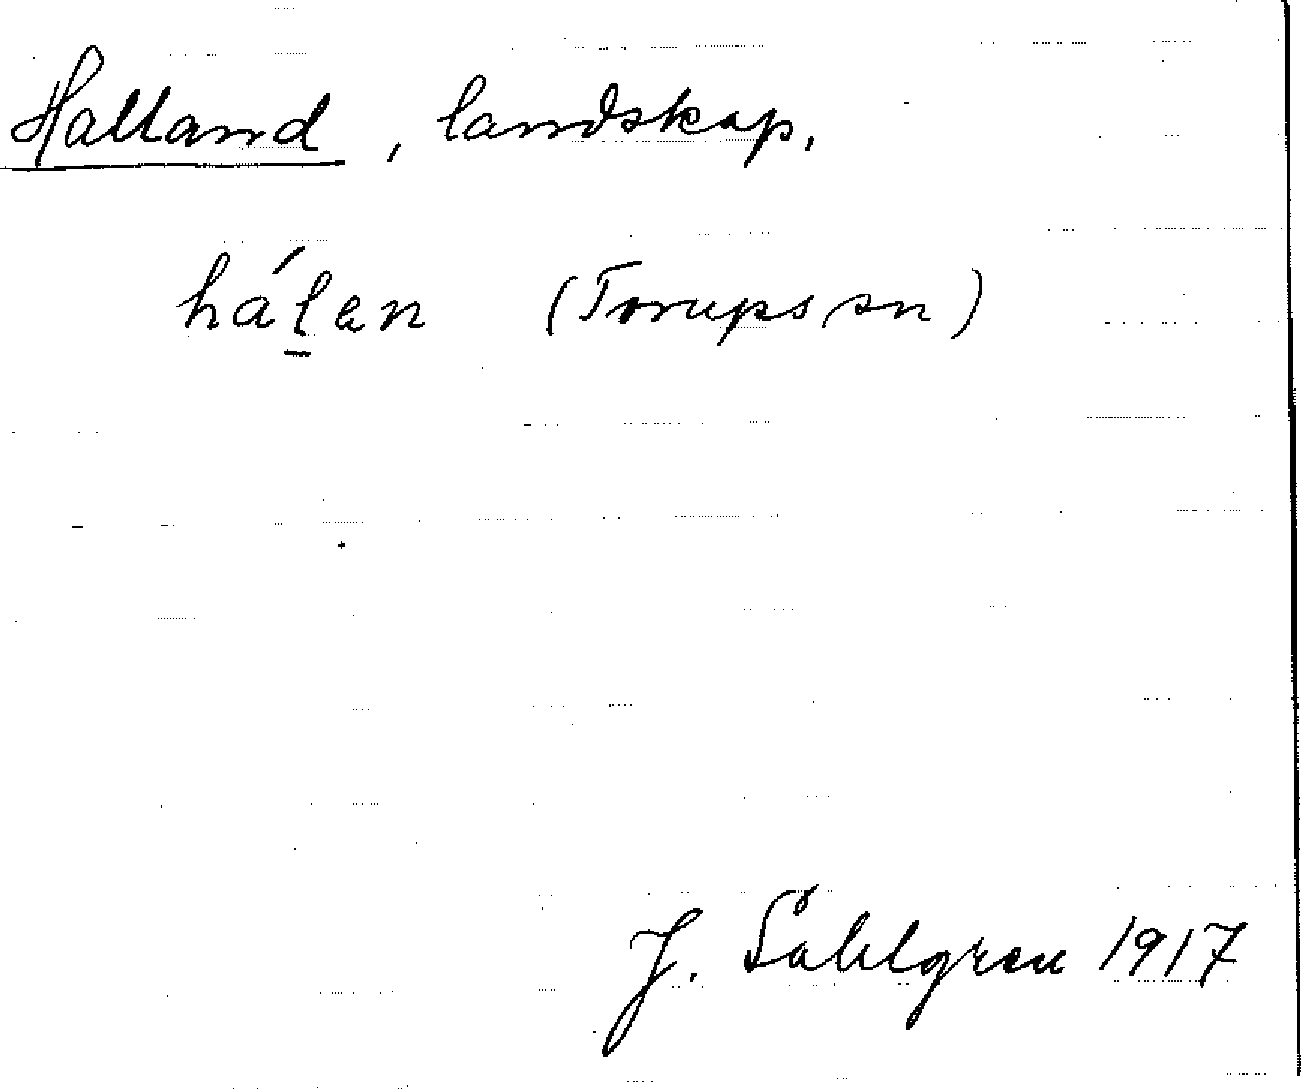 Halland, landskap,
hálen (Torups sn)
J. Sahlgren 1917